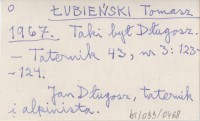 o ŁUBIEŃSKI Tomasz
1967. Taki był Długosz.
— Taternik 43, nr 3: 123-
-124.
Jan Długosz, taternik
i alpinista.
b1/033/0468